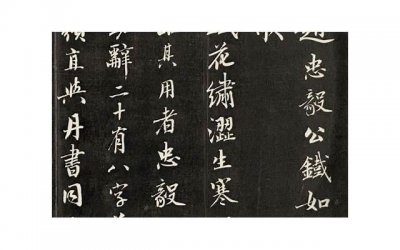 忠毅公鐵如
花繡澀生寒
其用者忠毅
辭二十有八字
宜與丹書同